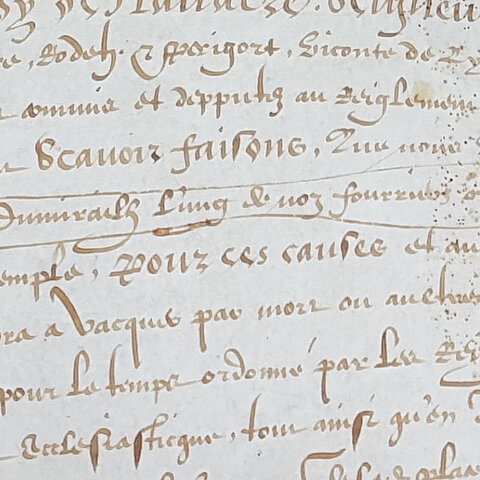 de Navarre. Seigneu
re, Rodez. & Perigort, Viconte de
commis et depputez au Reiglemen
Scavoir faisons, Que nous
Dumirailh L'ung de noz fourriers
emple, Pour ces causes et au
ra a Vacquer par mort ou aultre
pour le temps ordonné par les
Ecclesiasticque, tout ainsi qu'en